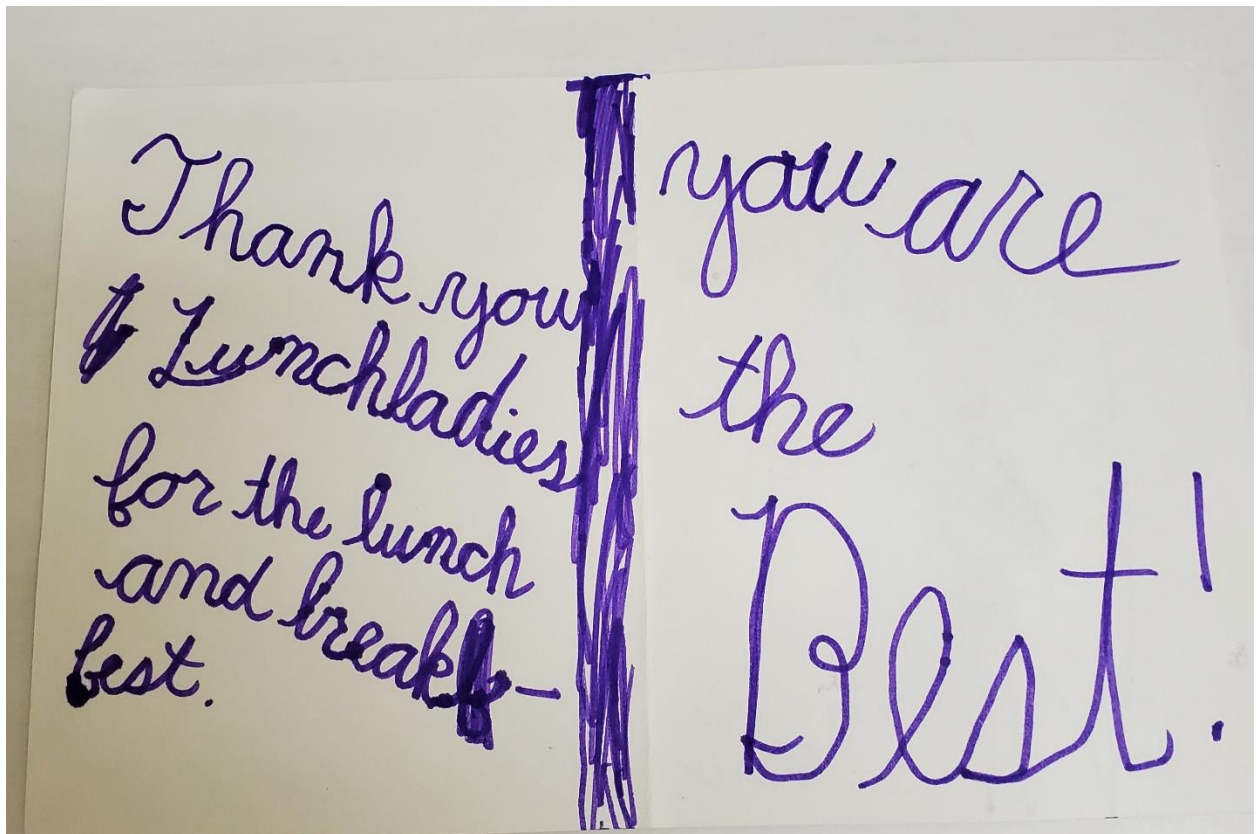 Thank you
Lunchladies
for the lunch
and break-
fest.
you are
the
Best!